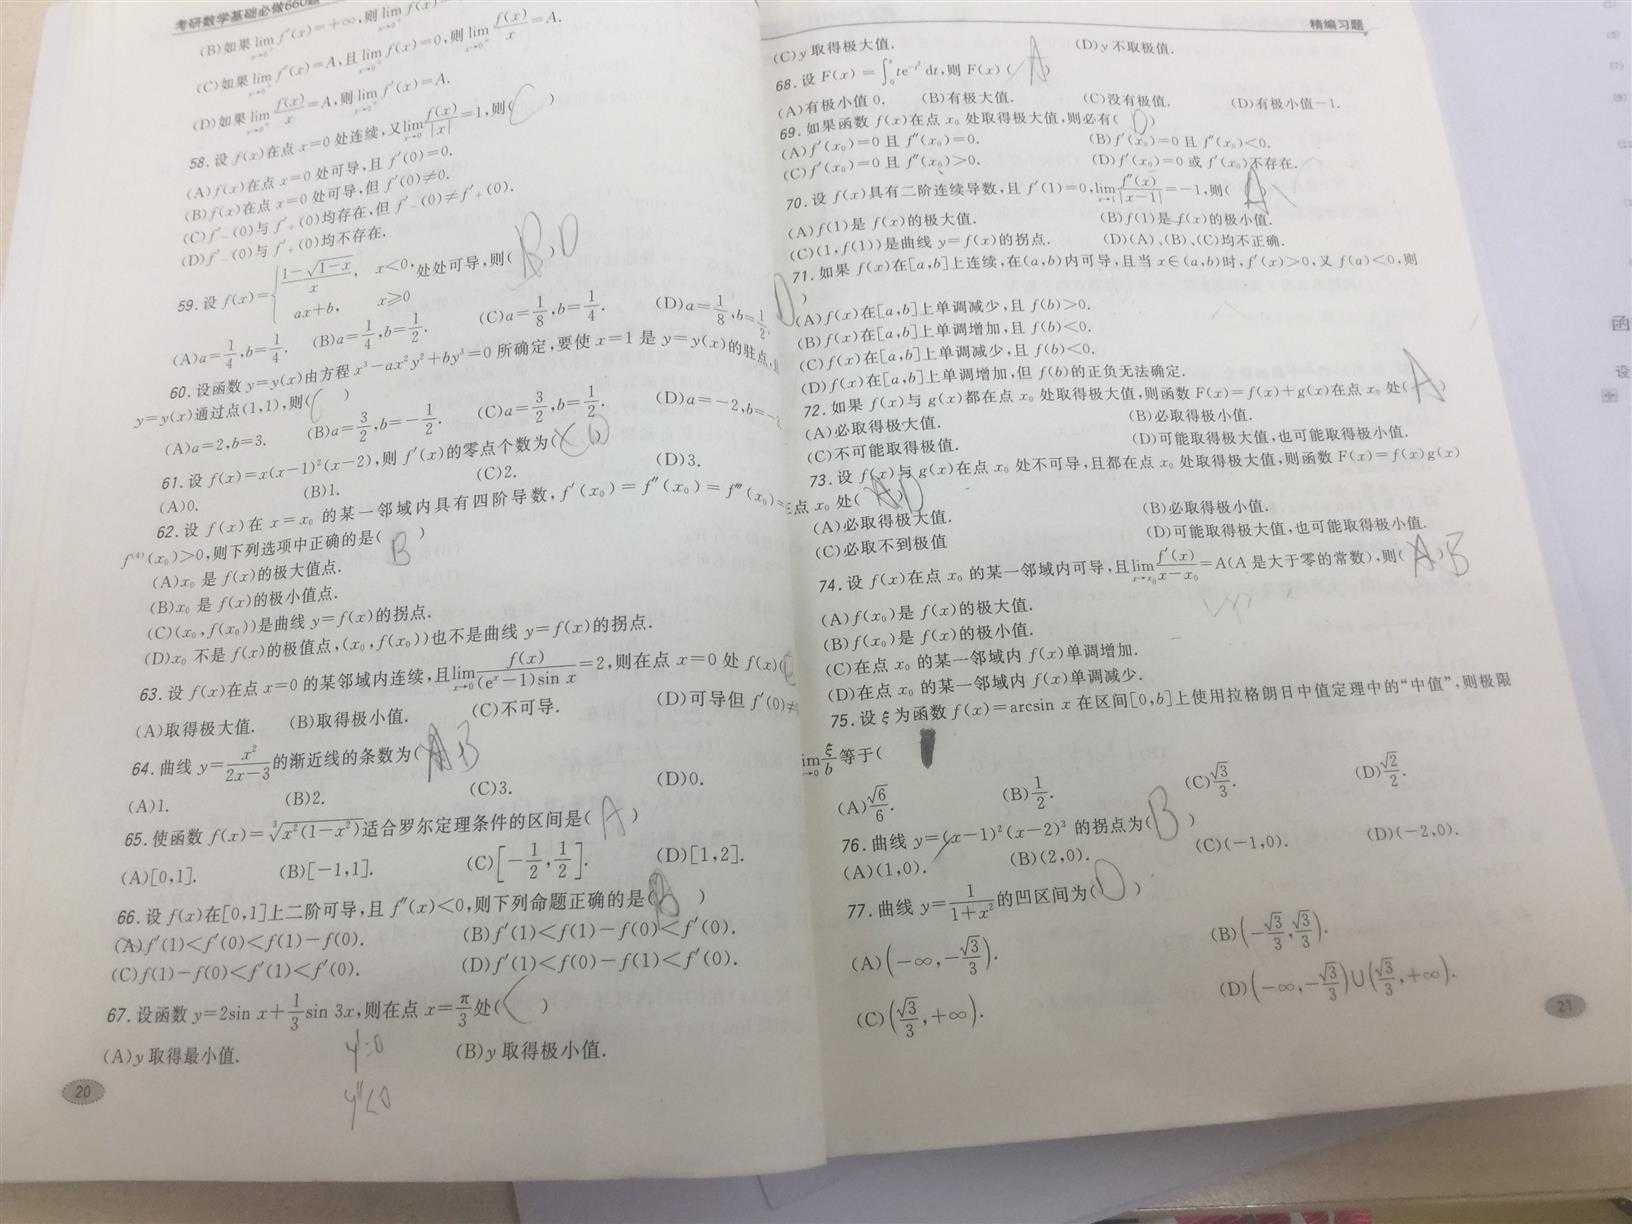 考研数学基础必做660题
(B)如果 lim f′(x)=+∞,则 lim f(x)
x→0⁺
(C)如果 lim f′(x)=A,且 lim f(x)=0,则 lim f(x)/x=A.
(D)如果 lim f(x)/x=A,则 lim f′(x)=A.
58.设 f(x)在点 x=0 处连续,又 lim x→0 f(x)/|x|=1,则( C )
(A)f(x)在点 x=0 处可导,且 f′(0)=0.
(B)f(x)在点 x=0 处可导,但 f′(0)≠0.
(C)f′₋(0)与 f′₊(0)均存在,但 f′₋(0)≠f′₊(0).
(D)f′₋(0)与 f′₊(0)均不存在.
59.设 f(x)={(1-√(1-x))/x, x<0, ax+b, x≥0 处处可导,则( B ) D
(A)a=1/4,b=1/4. (B)a=1/4,b=1/2. (C)a=1/8,b=1/4. (D)a=1/8,b=1/2
60.设函数 y=y(x)由方程 x³-ax²y²+by³=0 所确定,要使 x=1 是 y=y(x)的驻点,
y=y(x)通过点(1,1),则( C )
(A)a=2,b=3. (B)a=3/2,b=-1/2. (C)a=3/2,b=1/2. (D)a=-2,b=-
61.设 f(x)=x(x-1)²(x-2),则 f′(x)的零点个数为( D )
(A)0. (B)1. (C)2. (D)3.
62.设 f(x)在 x=x₀ 的某一邻域内具有四阶导数, f′(x₀)=f″(x₀)=f‴(x₀)=
f⁽⁴⁾(x₀)>0,则下列选项中正确的是( B )
(A)x₀ 是 f(x)的极大值点.
(B)x₀ 是 f(x)的极小值点.
(C)(x₀,f(x₀))是曲线 y=f(x)的拐点.
(D)x₀ 不是 f(x)的极值点,(x₀,f(x₀))也不是曲线 y=f(x)的拐点.
63.设 f(x)在点 x=0 的某邻域内连续,且 lim x→0 f(x)/((eˣ-1)sin x)=2,则在点 x=0 处 f(x)(
(A)取得极大值. (B)取得极小值. (C)不可导. (D)可导但 f′(0)≠
64.曲线 y=x²/(2x-3)的渐近线的条数为( A B
(A)1. (B)2. (C)3. (D)0.
65.使函数 f(x)=∛(x²(1-x²))适合罗尔定理条件的区间是( A )
(A)[0,1]. (B)[-1,1]. (C)[-1/2,1/2]. (D)[1,2].
66.设 f(x)在[0,1]上二阶可导,且 f″(x)<0,则下列命题正确的是( B )
(A)f′(1)<f′(0)<f(1)-f(0). (B)f′(1)<f(1)-f(0)<f′(0).
(C)f(1)-f(0)<f′(1)<f′(0). (D)f′(1)<f(0)-f(1)<f′(0).
67.设函数 y=2sin x+1/3 sin 3x,则在点 x=π/3 处( C )
(A)y 取得最小值. (B)y 取得极小值.
y′=0
y″<0
20
精编习题
(C)y 取得极大值. (D)y 不取极值.
68.设 F(x)=∫₀ˣ te^(-t²)dt,则 F(x)( A )
(A)有极小值 0. (B)有极大值. (C)没有极值. (D)有极小值-1.
69.如果函数 f(x)在点 x₀ 处取得极大值,则必有( D )
(A)f′(x₀)=0 且 f″(x₀)=0. (B)f′(x₀)=0 且 f″(x₀)<0.
(C)f′(x₀)=0 且 f″(x₀)>0. (D)f′(x₀)=0 或 f′(x₀)不存在.
70.设 f(x)具有二阶连续导数,且 f′(1)=0,lim x→1 f″(x)/|x-1|=-1,则( A
(A)f(1)是 f(x)的极大值. (B)f(1)是 f(x)的极小值.
(C)(1,f(1))是曲线 y=f(x)的拐点. (D)(A)、(B)、(C)均不正确.
71.如果 f(x)在[a,b]上连续,在(a,b)内可导,且当 x∈(a,b)时,f′(x)>0,又 f(a)<0,则
D )
(A)f(x)在[a,b]上单调减少,且 f(b)>0.
(B)f(x)在[a,b]上单调增加,且 f(b)<0.
(C)f(x)在[a,b]上单调减少,且 f(b)<0.
(D)f(x)在[a,b]上单调增加,但 f(b)的正负无法确定.
72.如果 f(x)与 g(x)都在点 x₀ 处取得极大值,则函数 F(x)=f(x)+g(x)在点 x₀ 处( A )
(A)必取得极大值. (B)必取得极小值.
(C)不可能取得极值. (D)可能取得极大值,也可能取得极小值.
73.设 f(x)与 g(x)在点 x₀ 处不可导,且都在点 x₀ 处取得极大值,则函数 F(x)=f(x)g(x)
点 x₀ 处( A D
(A)必取得极大值. (B)必取得极小值.
(C)必取不到极值 (D)可能取得极大值,也可能取得极小值.
74.设 f(x)在点 x₀ 的某一邻域内可导,且 lim x→x₀ f′(x)/(x-x₀)=A(A 是大于零的常数),则( A ) B
(A)f(x₀)是 f(x)的极大值.
(B)f(x₀)是 f(x)的极小值.
(C)在点 x₀ 的某一邻域内 f(x)单调增加.
(D)在点 x₀ 的某一邻域内 f(x)单调减少.
75.设 ξ 为函数 f(x)=arcsin x 在区间[0,b]上使用拉格朗日中值定理中的“中值”,则极限
lim b→0 ξ/b 等于(
(A)√6/6. (B)1/2. (C)√3/3. (D)√2/2.
76.曲线 y=(x-1)²(x-2)³ 的拐点为( B )
(A)(1,0). (B)(2,0). (C)(-1,0). (D)(-2,0).
77.曲线 y=1/(1+x²)的凹区间为( D )
(A)(-∞,-√3/3). (B)(-√3/3,√3/3).
(C)(√3/3,+∞). (D)(-∞,-√3/3)∪(√3/3,+∞).
21
函
设